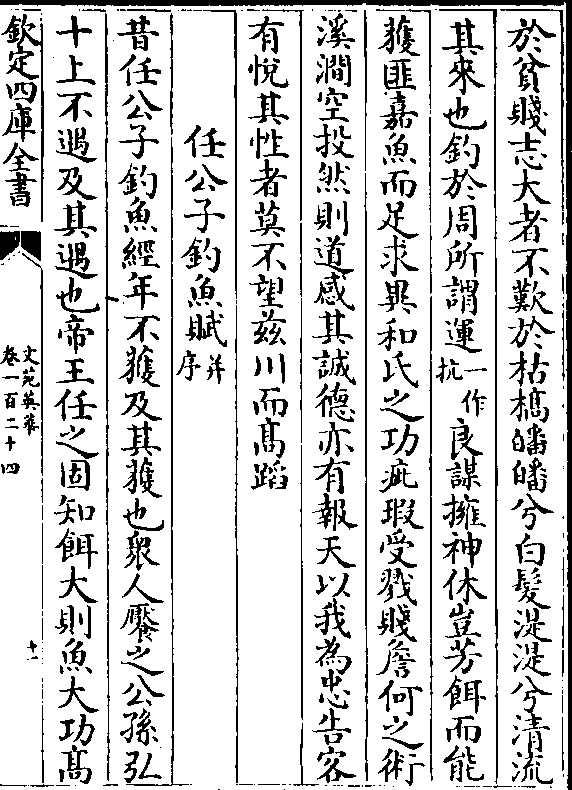 於貧賤志大者不歎於枯槁皤皤兮白髮湜湜兮清流
其來也釣於周所謂運一作抗良謀擁神休豈芳餌而能
獲匪嘉魚而足求異和氏之功疵瑕受戮賤詹何之術
溪澗空投然則道感其誠德亦有報天以我為忠告客
有悅其性者莫不望茲川而髙蹈
任公子釣魚賦并序
昔任公子釣魚經年不獲及其獲也衆人饜之公孫弘
十上不遇及其遇也帝王任之固知餌大則魚大功髙
欽定四庫全書
文苑英華
卷一百二十四
十一